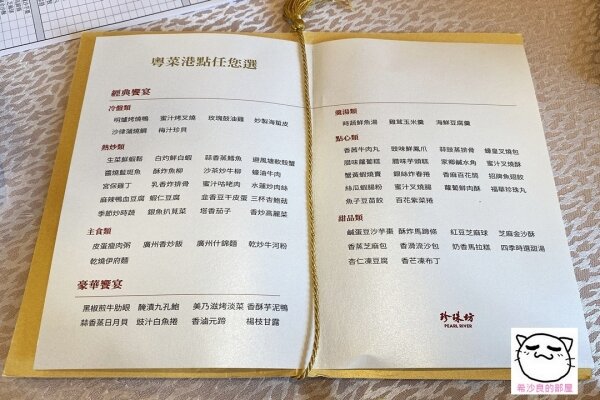 粵菜港點任您選
經典饗宴
冷盤類
明爐烤燒鴨 蜜汁烤叉燒 玫瑰鼓油雞 妙製海蜇皮
沙律蒲燒鯛 梅汁珍貝
熱炒類
生菜鮮蝦鬆 白灼鮮白蝦 蒜香蒸鱈魚 避風塘軟殼蟹
醬燒藍斑魚 酥炸魚柳 沙茶炒牛柳 蠔油牛肉
宮保雞丁 乳香炸排骨 蜜汁咕咾肉 水蓮炒肉絲
麻辣鴨血豆腐 蝦仁豆腐 韭香豆干皮蛋 三杯杏鮑菇
季節炒時蔬 銀魚扒莧菜 塔香茄子 香炒高麗菜
主食類
皮蛋瘦肉粥 廣州香炒飯 廣州什錦麵 乾炒牛河粉
乾燒伊府麵
豪華饗宴
黑椒煎牛肋眼 醃漬九孔鮑 美乃滋烤淡菜 香酥芋泥鴨
蒜香蒸日月貝 豉汁白魚捲 香滷元蹄 楊枝甘露
羹湯類
時蔬鮮魚湯 雞茸玉米羹 海鮮豆腐羹
點心類
香茜牛肉丸 豉味鮮鳳爪 蒜豉蒸排骨 蠔皇叉燒包
臘味蘿蔔糕 臘味芋頭糕 家鄉鹹水角 蜜汁叉燒酥
蟹黃蝦燒賣 銀絲炸春捲 香麻百花腸 招牌魚翅餃
絲瓜蝦腸粉 蜜汁叉燒腸 蘿蔔鮮肉酥 福華珍珠丸
魚子豆苗餃 百花紫菜捲
甜品類
鹹蛋豆沙芋棗 酥炸馬蹄條 紅豆芝麻球 芝麻金沙酥
香蒸芝麻包 香滑流沙包 奶香馬拉糕 四季時選甜湯
杏仁凍豆腐 香芒凍布丁
珍珠坊
PEARL RIVER
希沙良的部屋